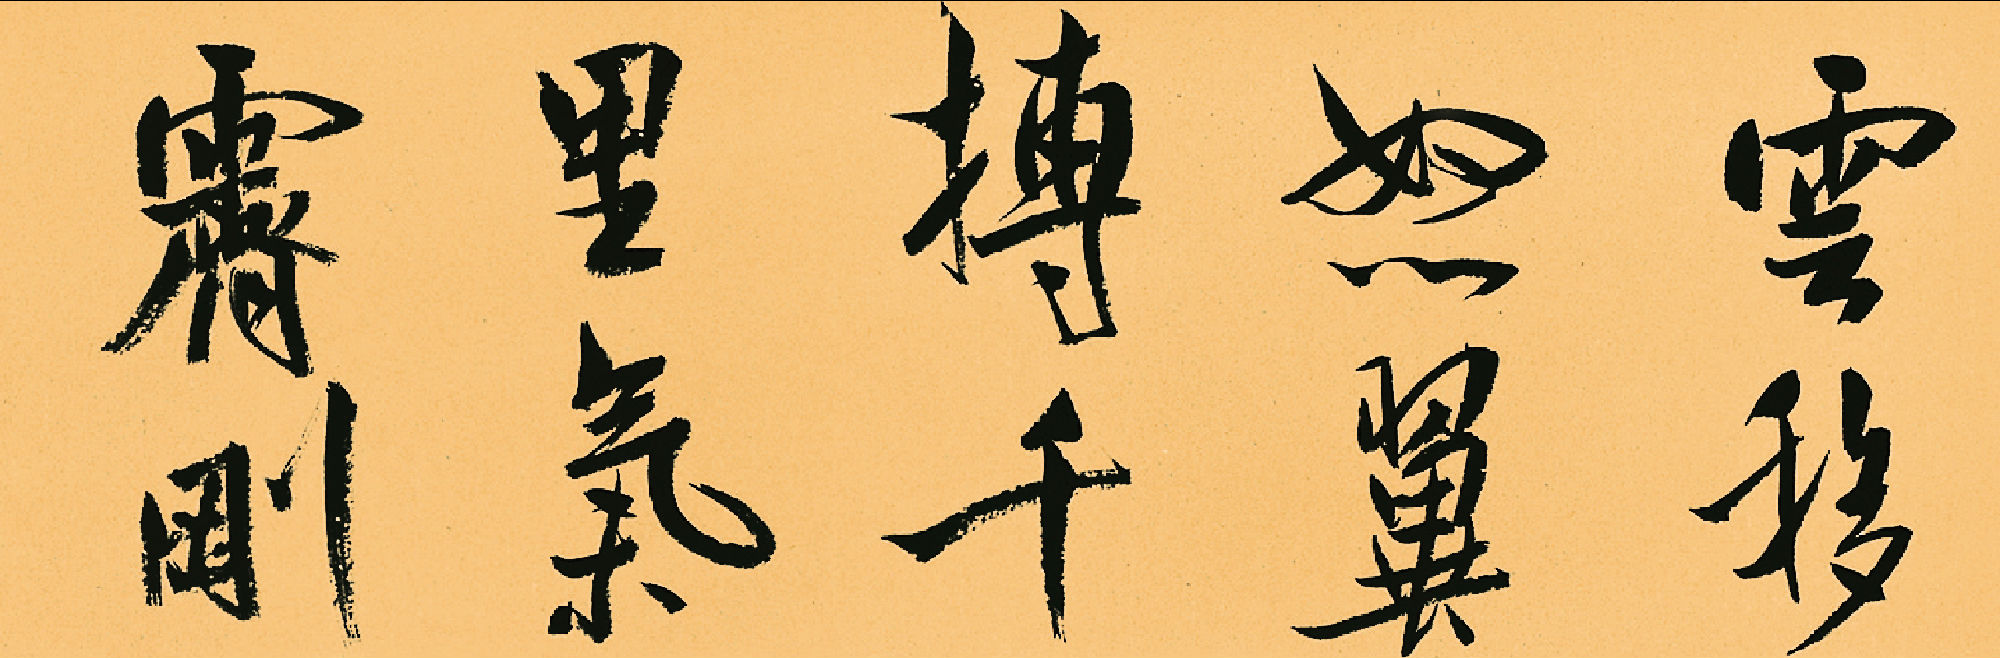 雲移
怒翼
搏千
里氣
霽剛